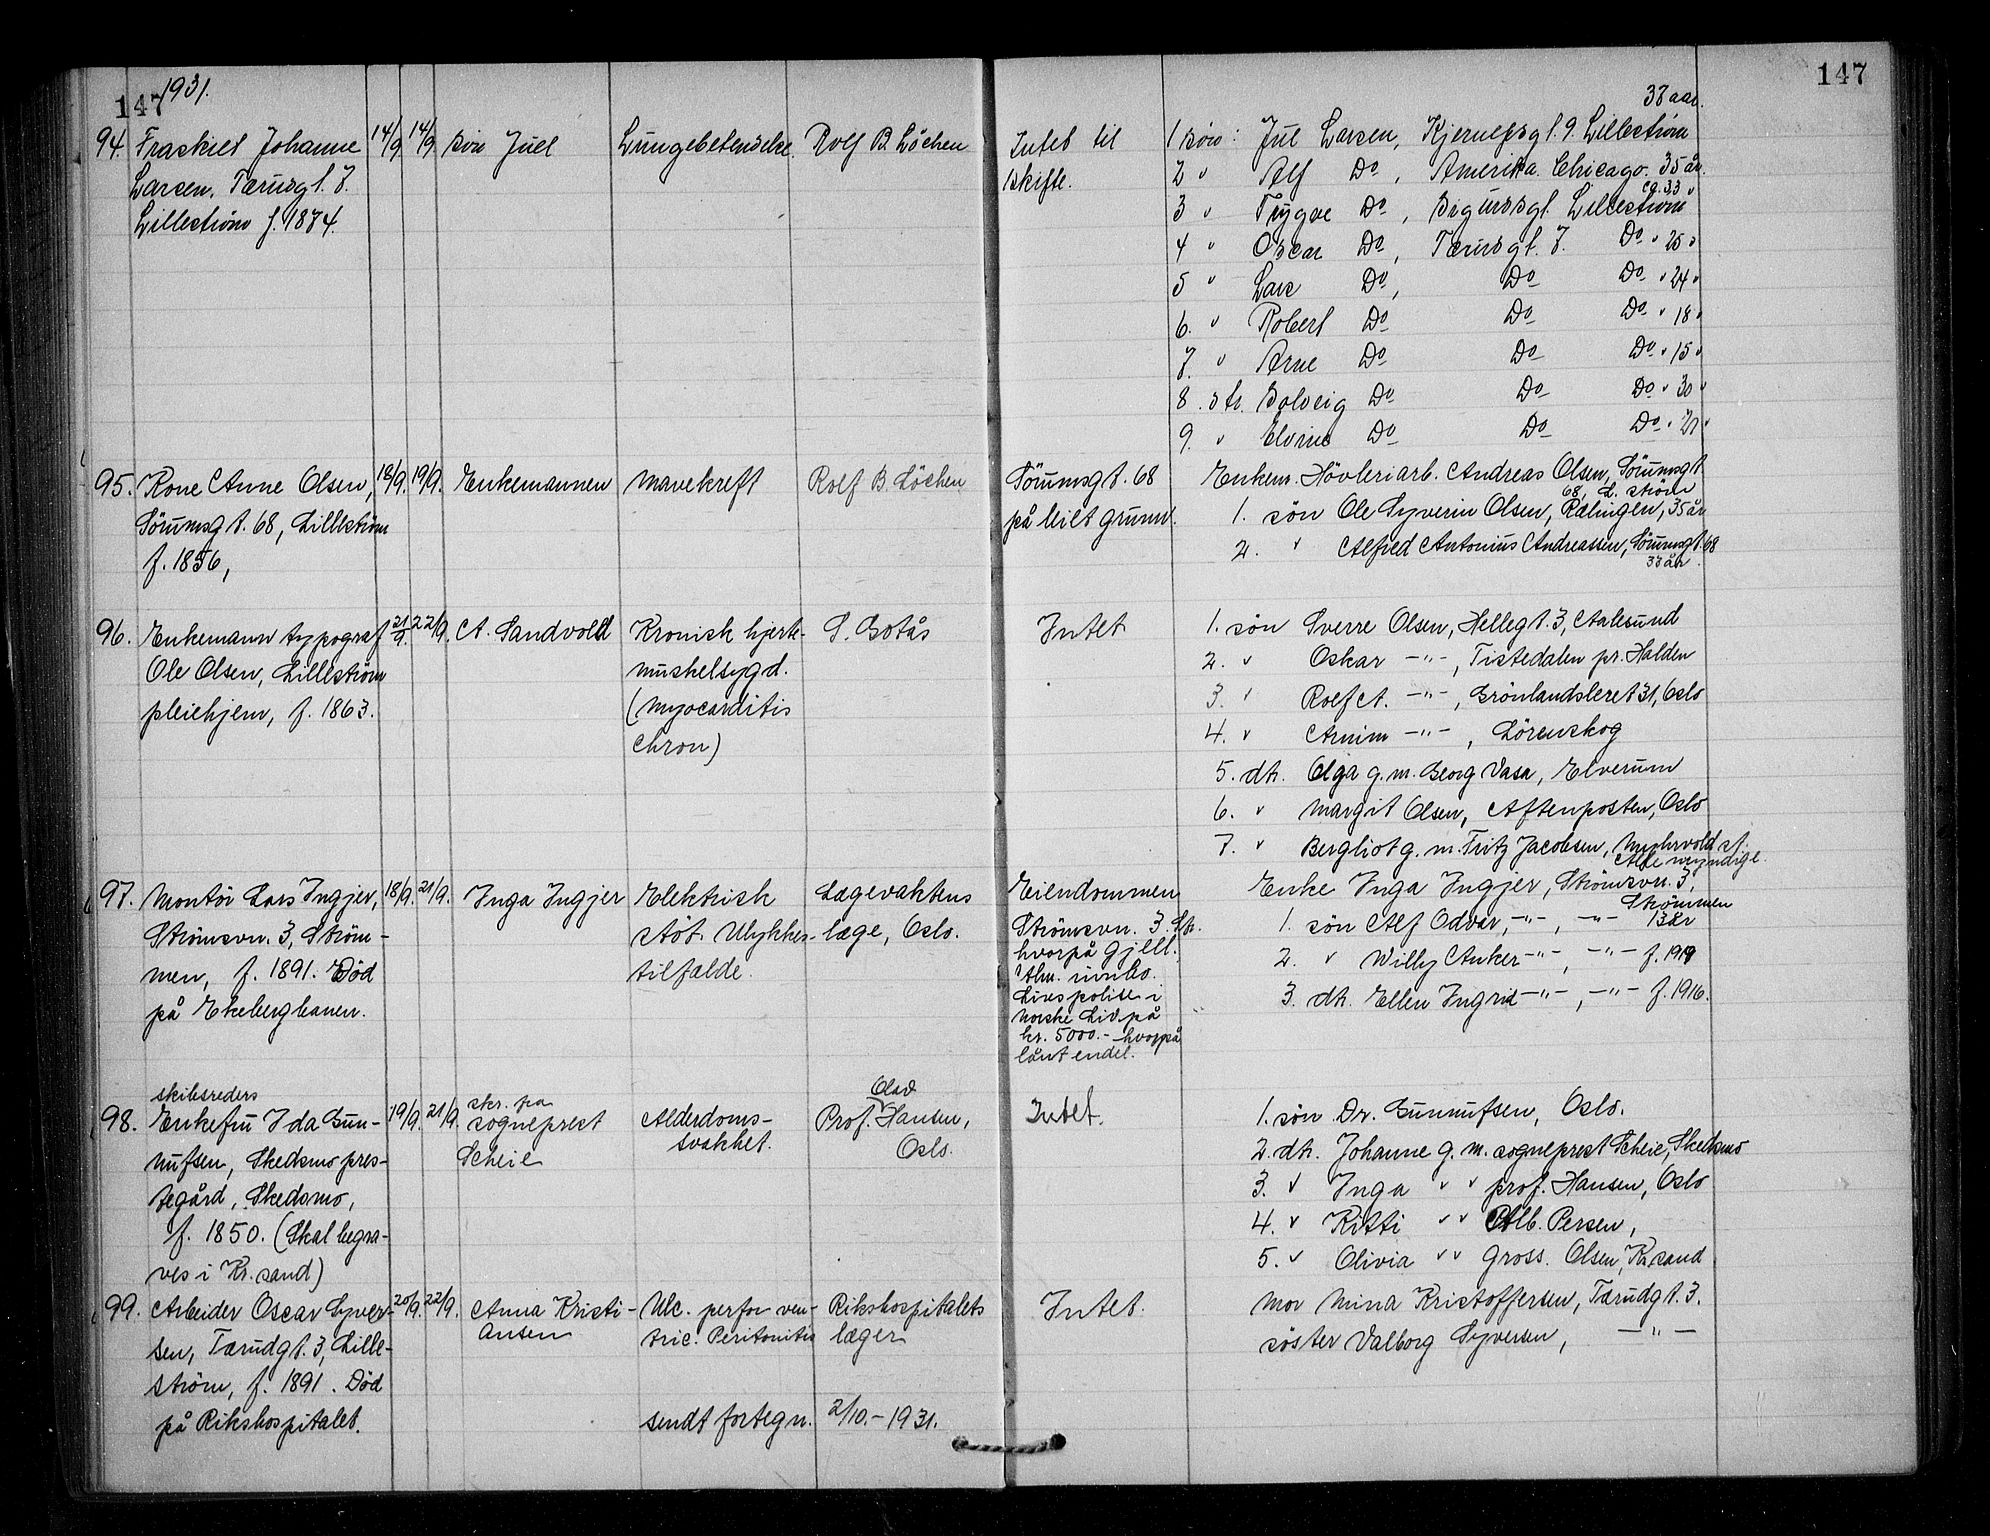 147 1931.
94. Fraskilt Johanne 14/9 14/9 sön Juel Lungebetendelse. Rolf B. Löchen
Larsen. Tærudgt. 7.
Lilleström f. 1874.
95. Kone Anne Olsen, 18/9. 19/9. Enkemannen mavekreft Rolf B. Löchen
Sörumsgt. 68, Lilleström
f. 1856,
96. Enkemann typograf 21/9. 22/9. A. Sandvold Kronisk hjerte- S. Botås
Ole Olsen, Lilleström muskelsygd.
pleiehjem, f. 1863. (myocarditis
chron)
97. Montör Lars Ingjer, 18/9. 21/9. Inga Ingjer Elektrisk Lægevaktens
Strömsvn. 3, Ström- stöt. Ulykkes- læge, Oslo.
men, f. 1891. Död tilfælde.
på Ekebergbanen.
skibsreders
98. Enkefru Ida Gun- 19/9. 21/9. skr. pa sogneprest Alderdoms- Prof. Olav Hansen,
nufsen, Skedsmo pres- Scheie svakhet. Oslo.
tegård, Skedsmo,
f. 1850. (Skal begra-
ves i Kr.sand)
99. Arbeider Oscar Syver- 20/9. 22/9. Anna Kristi- Ulc. perfor ven- Rikshospitalets
sen, Tærudgt. 3, Lille- ansen tric. Peritonitis læger
ström, f. 1891. Död
på Rikshospitalet. sendt fortegn. 2/10.-1931.
147
38 aar.
Intet til 1 sön: Jul Larsen, Kjerulfsgt. 9. Lilleström
skifte. 2 " Alf Do, Amerika. Chicago. 35 år.
ca. 33 "
3 " Trygve Do, Sigurdsgt. Lilleström
4 " Oscar Do, Tærudgt. 7. Do " 25 "
5 " Lars Do, Do Do " 24 "
6. " Robert Do Do Do " 18 "
7. " Arne Do Do Do " 15 "
8. dtr. Solveig Do Do Do " 30 "
9. " Elvine Do Do Do " 21 "
Sörumsgt. 68 Enkem. Hövleriarb. Andreas Olsen, Sörumsgt.
68, L. ström
på leiet grunn. 1. sön Ole Syverin Olsen, Rælingen, 35 år
2. " Alfred Antonius Andreassen, Sörumsgt. 68
33 år.
Intet 1. sön Sverre Olsen, Hellegt. 3, Aalesund
2. " Oskar -"-, Tistedalen pr. Halden
3. " Rolf A. -"-, Grönlandsleret 31, Oslo
4. " Arnim -"-, Lörenskog
5. dtr. Olga g. m. Georg Vasa, Elverum
6. " Margit Olsen, Aftenposten, Oslo
7. " Bergliot g. m. Fritz Jacobsen, Myhrvold st.
Alle myndige.
Eiendommen Enke Inga Ingjer, Strömsvn. 3,
Strömmen
Strömsvn. 3. Str. 1. sön Alf Odvar, -"-, -"- 13 år
hvorpå gjell. 2. " Willy Anker -"-, -"- f. 1919
Alm. innbo. 3. dtr. Ellen Ingrid -"-, -"- f. 1916.
Livspolise i
Norske Liv på
kr. 5000.- hvorpå
lånt endel.
Intet. 1. sön Dr. Gunnufsen, Oslo.
2. dtr. Johanne g. m. sogneprest Scheie, Skedsmo
3. " Inga " " prof. Hansen, Oslo
4. " Kitti " " Alb. Persen,
5. " Olivia " " Gross. Olsen, Kr.sand
Intet. Mor Mina Kristoffersen, Tærudgt. 3.
söster Valborg Syversen, -"-